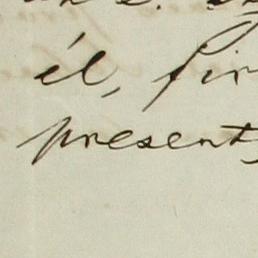 él, fir
present